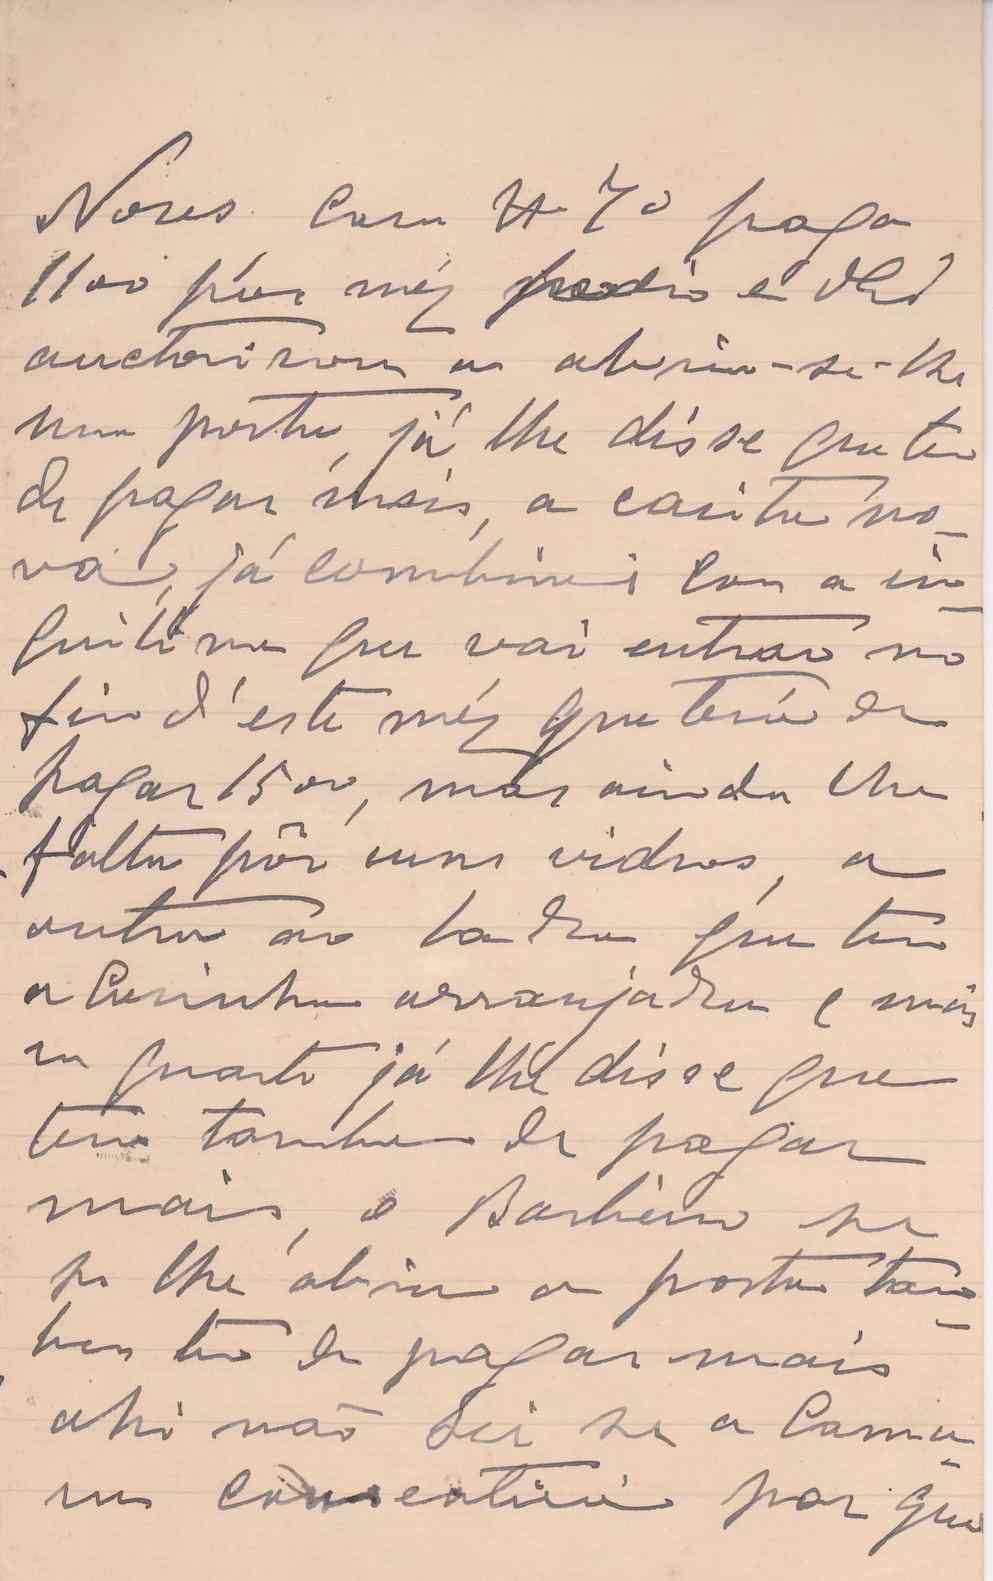 Nores casa Nº 70 paga
1100 por méz pedio e
auctorisou a abrir-se-lhe
uma porta, já lhe disse que tem
de pagar mais, a casita no-
va, já combinei com a in-
quilina que vai entrar no
fim d'este méz que terá de
pagar 1500, mas ainda lhe
falta pôr uns vidros, a
outra ao lado que tem
a Cosinha arranjada e mais
um quarto já lhe disse que
tem tambem de pagar
mais, o Barbeiro se
se lhe abrir a porta tam-
bem tem de pagar mais
ahi não sei se a Cama-
ra consentirá por que